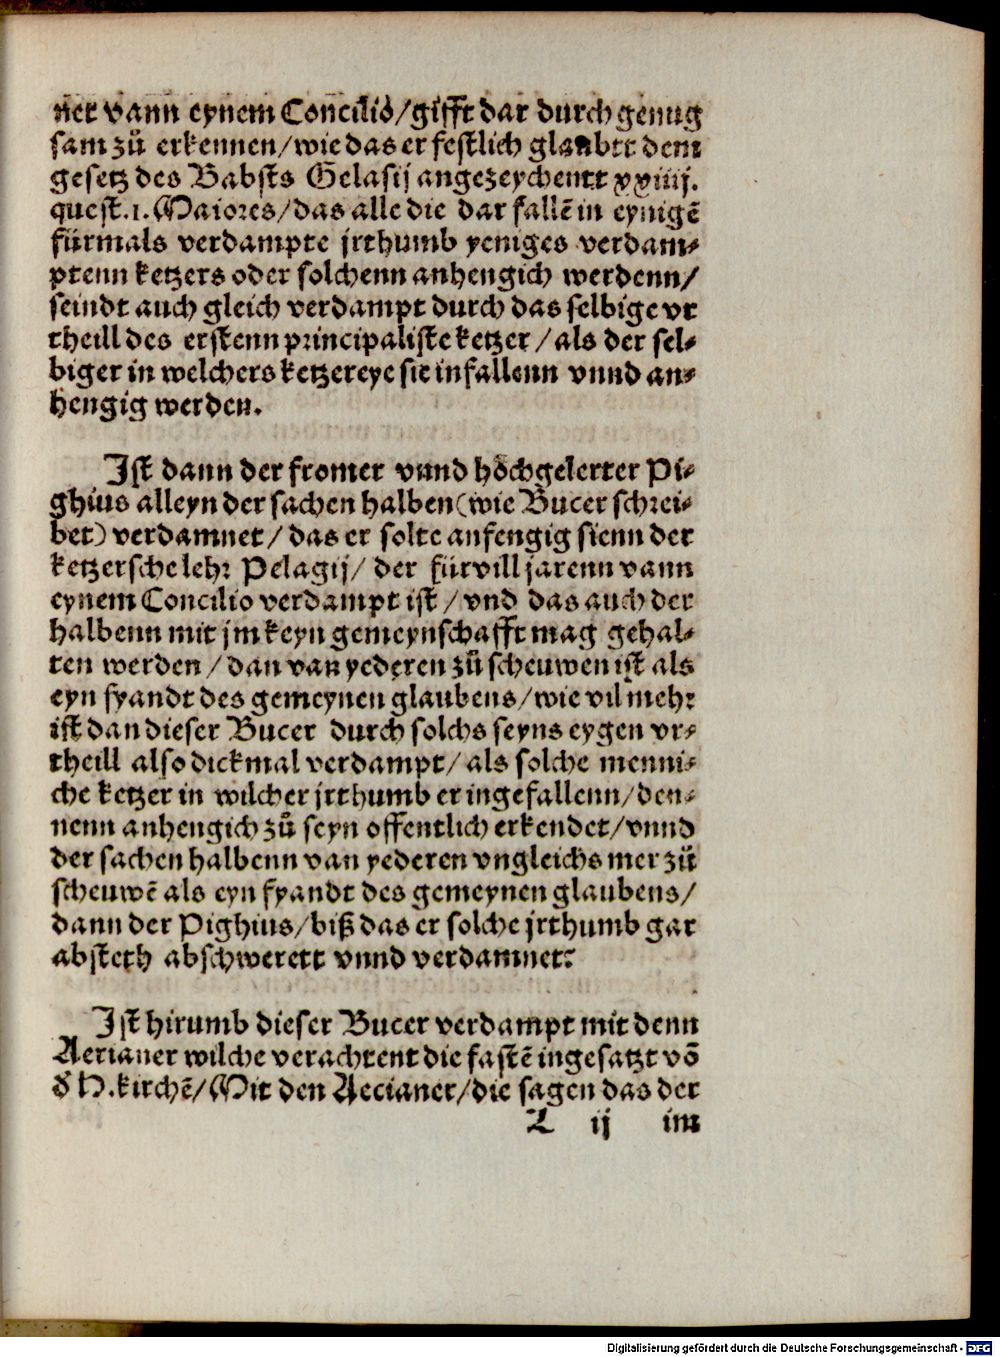 ner vann eynem Concilio/gifft dar durch genug
sam zů erkennen/wie das er festlich glaubtt dem
gesetz des Babsts Gelasij angezeychentt xxiiij.
quest.1.Maiores/das alle die dar fallē in eynigē
fürmals verdampte jrthumb yeniges verdam⸗
ptenn ketzers oder solchenn anhengich werdenn/
seindt auch gleich verdampt durch das selbige vr
theill des erstenn principaliste ketzer/als der sel⸗
biger in welchers ketzereye sie infallenn vnnd an⸗
hengig werden.

Ist dann der fromer vnnd hochgelerter Pi⸗
ghius alleyn der sachen halben(wie Bucer schrei⸗
bet) verdamnet/das er solte anfengig sienn der
ketzersche lehr Pelagij/der fürvill jarenn vann
eynem Concilio verdampt ist/vnd das auch der
halbenn mit jm keyn gemeynschafft mag gehal⸗
ten werden/dan van yederen zů scheuwen ist als
eyn fyandt des gemeynen glaubens/wie vil mehr
ist dan dieser Bucer durch solchs seyns eygen vr⸗
theill also dickmal verdampt/als solche menni⸗
che ketzer in wilcher jrthumb er ingefallenn/den⸗
nenn anhengich zů seyn offentlich erkendet/vnnd
der sachen halbenn van yederen vngleichs mer zů
scheuwē als eyn fyandt des gemeynen glaubens/
dann der Pighius/biß das er solche jrthumb gar
absteth abschwerett vnnd verdamnet:

Ist hirumb dieser Bucer verdampt mit denn
Aerianer wilche verachtent die fastē ingesatzt vō
d̄ H.kirchē/Mit den Aecianer/die sagen das der
L ij im
Digitalisierung gefördert durch die Deutsche Forschungsgemeinschaft - DFG